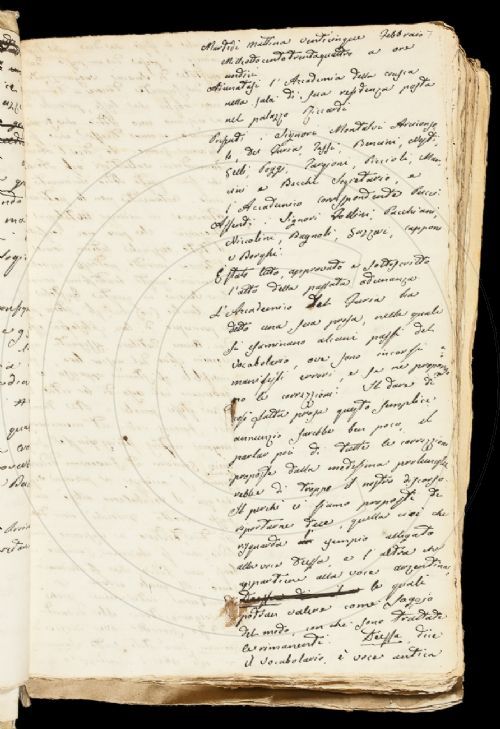 Martedì Mattina venticinque Febbraio
Milleottocentotrentaquattro a ore
undici
Adunatasi l'Accademia della Crusca
nella sala di sua residenza posta
nel palazzo Riccardi
Presenti i Signori Montalvi Arciconso
lo, Del Furia, Zessi, Bencini,
Gelli, Poggi, Targioni, Piccioli,
e Becchi Segretario, e
l'Accademico corrispondente Pucci
Assenti i Signori Follini, Pacchiani,
Nicolini, Bagnoli, Gazzeri, Capponi
e Borghi.
È stato letto, approvato e sottoscritto
l'atto della passata adunanza
L'Accademico Del Furia ha
detto una sua prosa, nella quale
si esaminano alcuni passi del
vocabolario, ove sono incorsi
manifesti errori, e se ne propongo
no le correzioni. Il dare di
così fatta prosa questo semplice
annunzio sarebbe ben poco, il
parlar poi di tutte le correzioni
proposte dalla medesima prolunghe
rebbe di troppo il nostro discorso.
Il perchè ci siamo proposti di
riportarne due, quella cioè che
risguarda esempio allegato
alla voce Duessa, e l'altra che
appartiene alla voce
le quali
potran valere come saggio
del modo, con che sono trattate
le rimanenti. Duessa, dice
il vocabolario, è voce antica